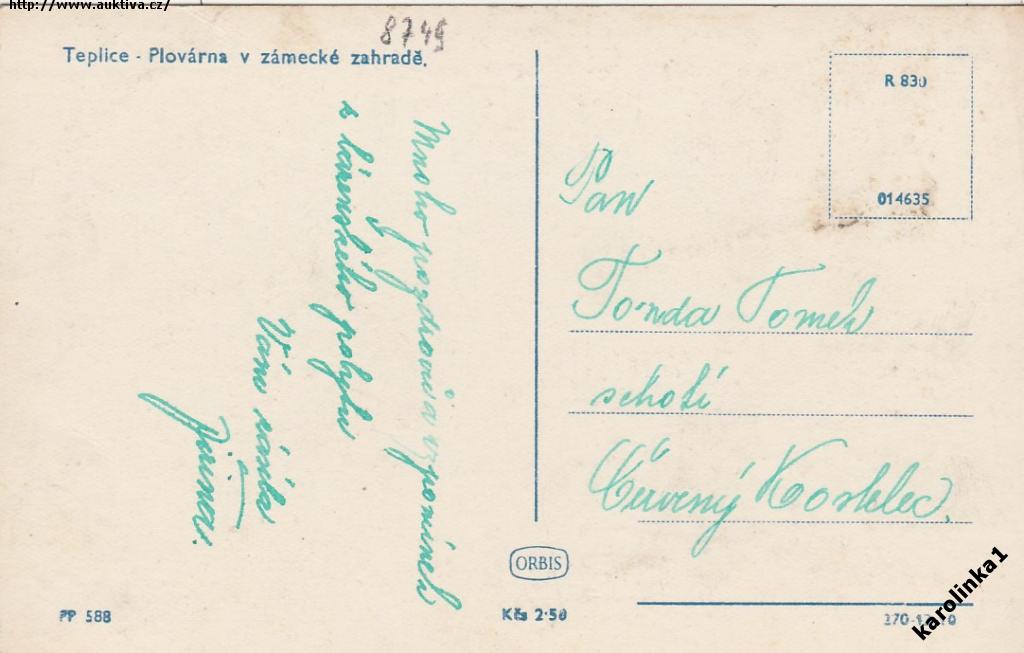 http://www.auktiva.cz/
8749
Teplice - Plovárna v zámecké zahradě.
Mnoho pozdravů a vzpomínek
z lázeňského pobytu
Vám zasílá
Jiřina.
R 830
014635
Pan
Tonda Tomek
Červený Kostelec.
ORBIS
PP 588
Kčs 2·50
karolinka1